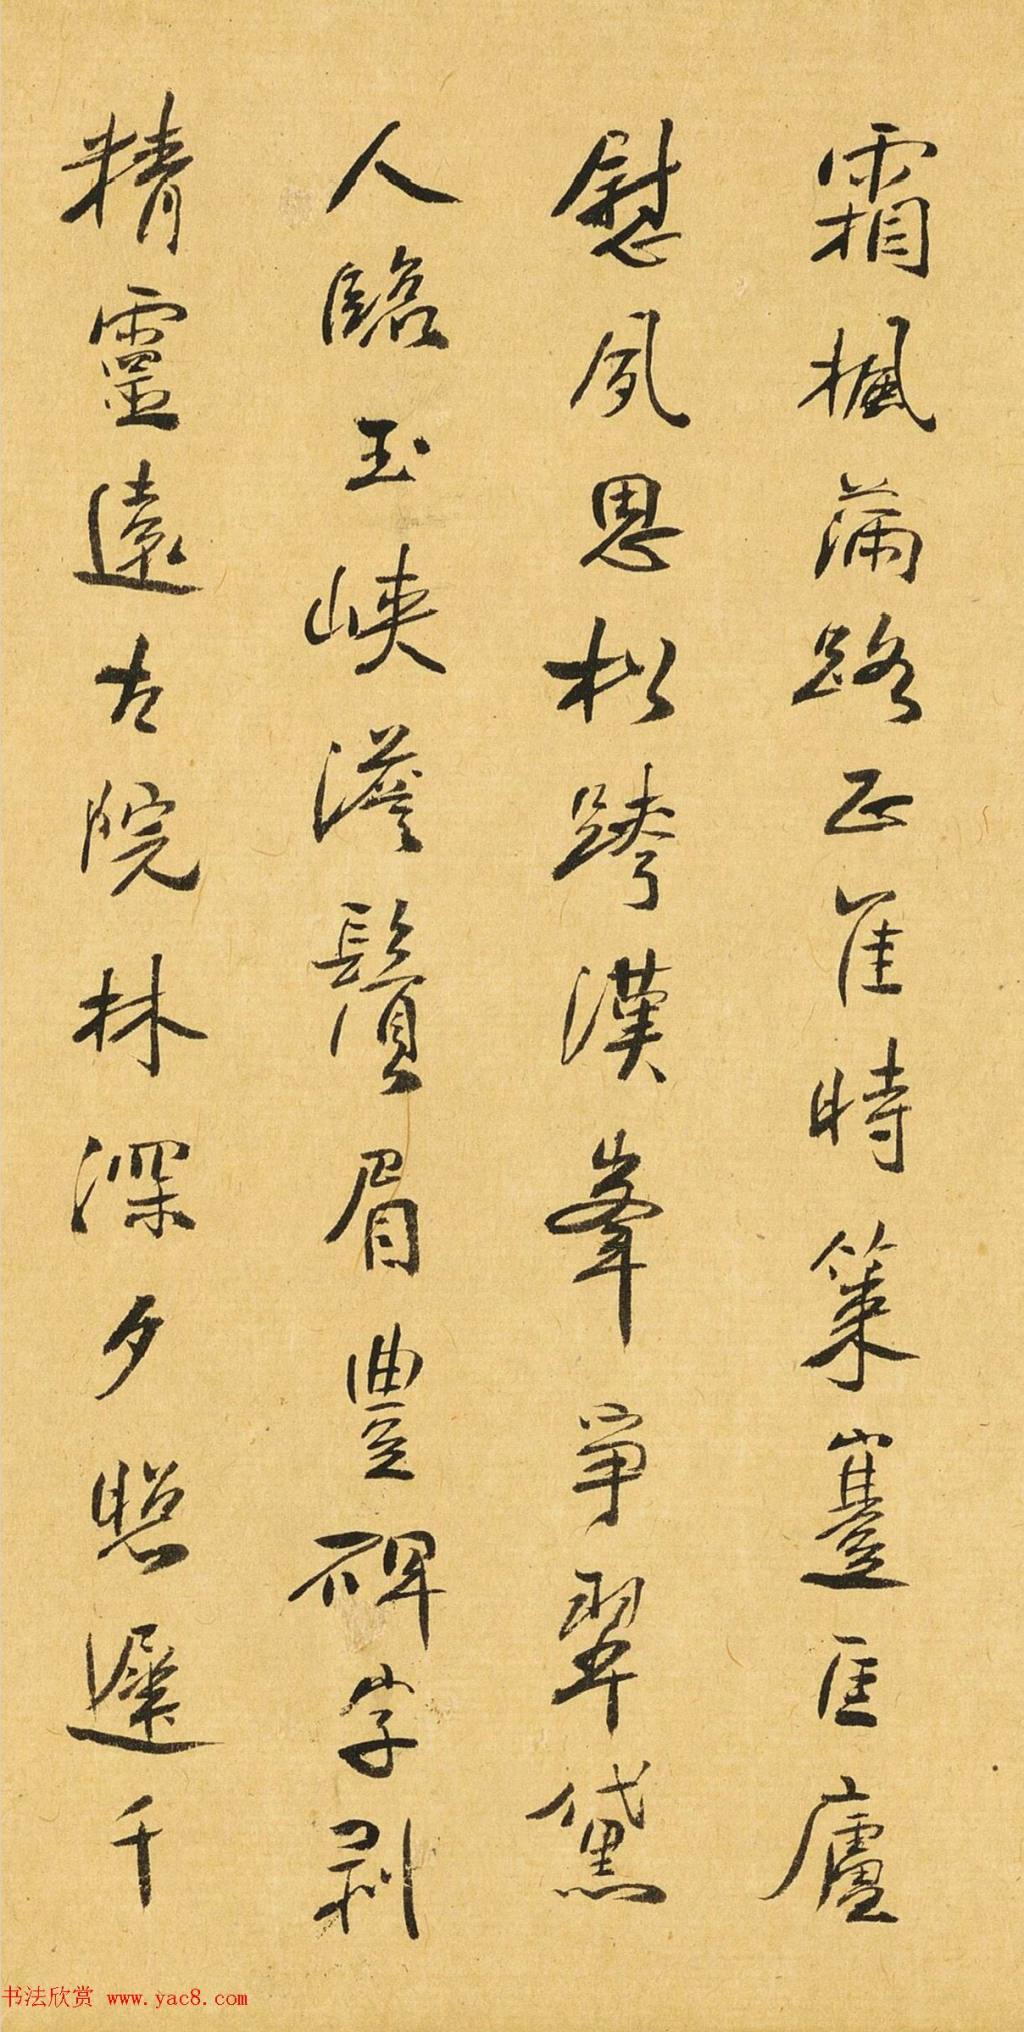 霜楓滿路正佳時策蹇匡廬
慰夙思松跨漢峯爭翠黛
人臨玉峽澹鬚眉豐碑字剥
精靈遠古院林深夕照遲千
书法欣赏 www.yac8.com